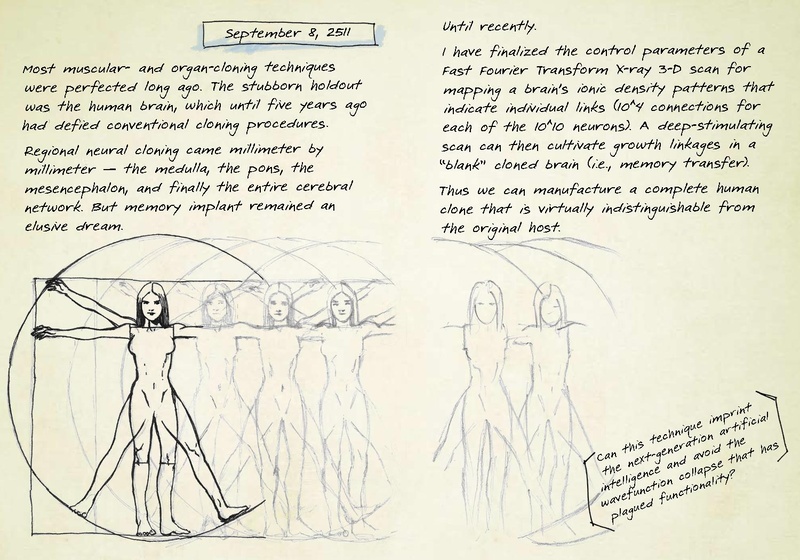 September 8, 2511
Most muscular- and organ-cloning techniques
were perfected long ago. The stubborn holdout
was the human brain, which until five years ago
had defied conventional cloning procedures.
Regional neural cloning came millimeter by
millimeter — the medulla, the pons, the
mesencephalon, and finally the entire cerebral
network. But memory implant remained an
elusive dream.
Until recently.
I have finalized the control parameters of a
Fast Fourier Transform X-ray 3-D scan for
mapping a brain's ionic density patterns that
indicate individual links (10^4 connections for
each of the 10^10 neurons). A deep-stimulating
scan can then cultivate growth linkages in a
"blank" cloned brain (i.e., memory transfer).
Thus we can manufacture a complete human
clone that is virtually indistinguishable from
the original host.
Can this technique imprint
the next-generation artificial
intelligence and avoid the
wavefunction collapse that has
plagued functionality?